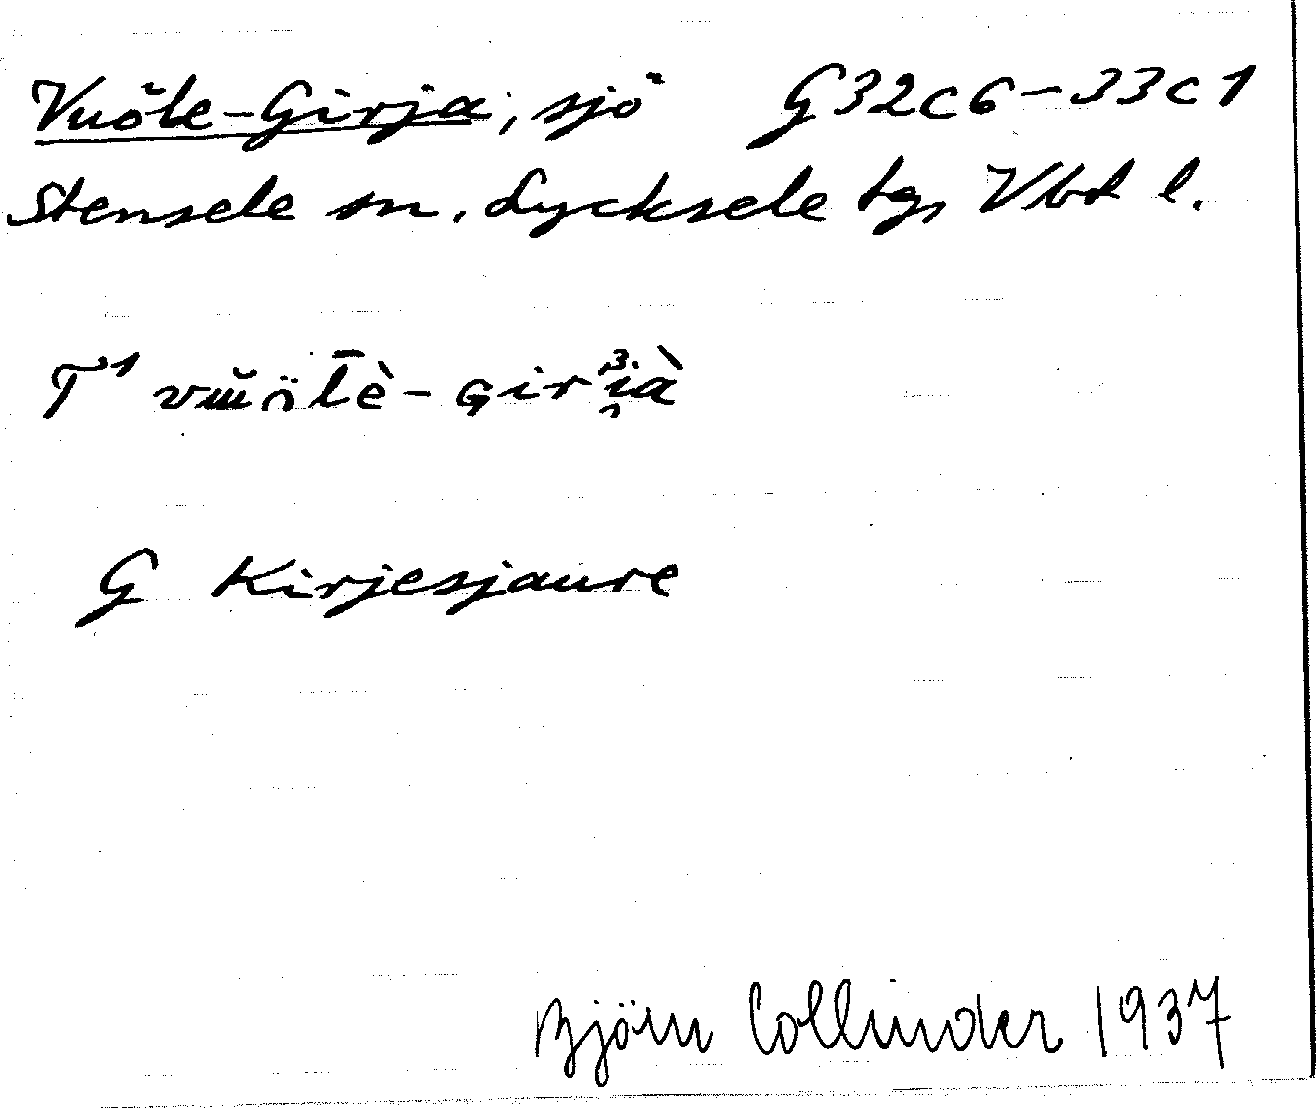 Vuŏle-Girja, sjö G32c6-33c1
Stensele sn. Lycksele tg, Vbt l.
T¹
G Kirjesjaure
Björn Collinder 1937